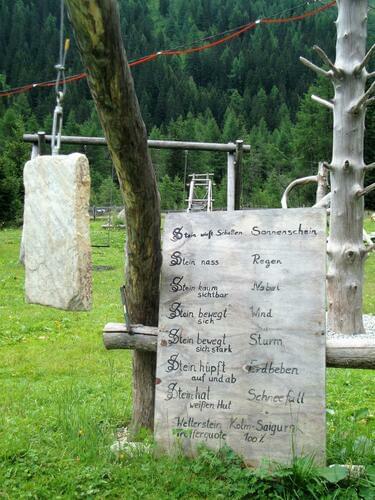 Stein wirft Schatten Sonnenschein
Stein nass Regen
Stein kaum Nebel
sichtbar
Stein bewegt Wind
sich
Stein bewegt Sturm
sich stark
Stein hüpft Erdbeben
auf und ab
Stein hat Schneefall
weißen Hut
Wetterstein Kolm-Saigurn
Trefferquote 100%